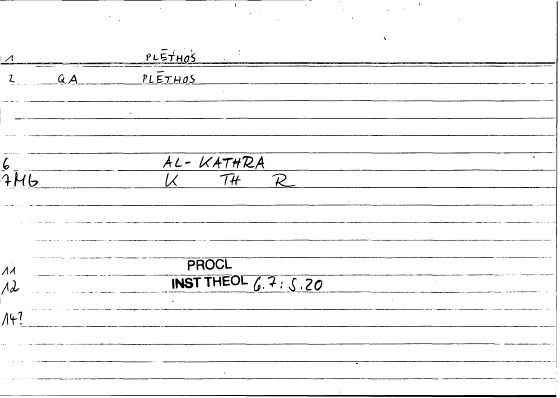 1 PLĒTHOS
2 QA PLĒTHOS
6 AL-KATHRA
7MG K TH R
11 PROCL
12 INST THEOL 6.7: 5.20
14?